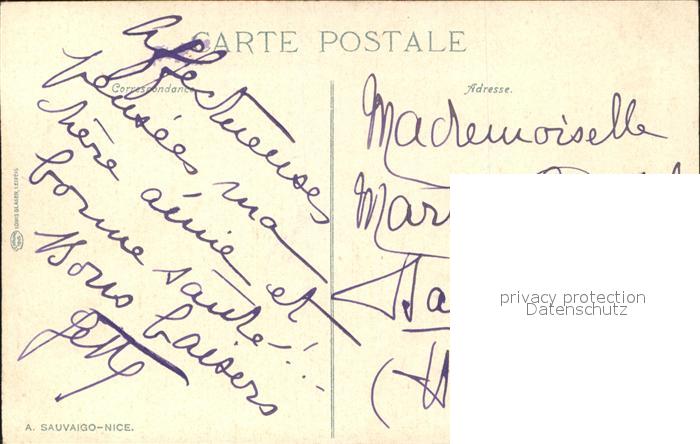 CARTE POSTALE
Correspondance
Adresse.
Affectueuses
pensées ma
chère amie et
bonne santé!...
Bons baisers
Mademoiselle
Mar
privacy protection
Datenschutz
LOUIS GLASER, LEIPZIG
A. SAUVAIGO–NICE.